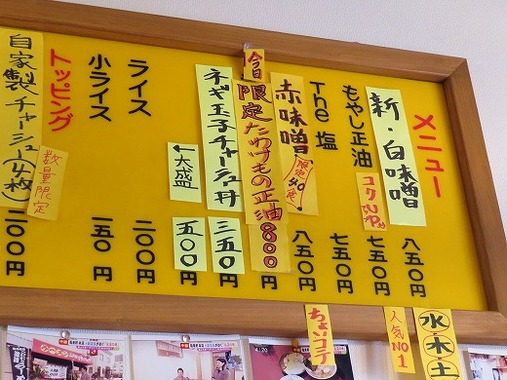 メニュー
新・白味噌
八五〇円
もやし正油
コクUP!!
七五〇円
The 塩
七五〇円
赤味噌
限定40食
八五〇円
今日
限定 たわけもの正油
800円
ネギ玉子チャーシュー丼
三五〇円
大盛
五〇〇円
ライス
二〇〇円
小ライス
一五〇円
トッピング
自家製チャーシュー(4枚)
数量限定
二〇〇円
水・木・土
人気No1
ちょいコテ